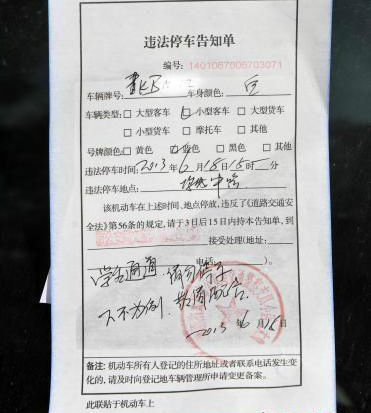 违法停车告知单
编号: 1401067005703071
车辆牌号: 车身颜色: 白
车辆类型: 大型客车 小型客车 大型货车
小型货车 摩托车 其他
号牌颜色 黄色 蓝色 黑色 其他
违法停车时间: 2013年6月18日15时 分
违法停车地点: 中路
该机动车在上述时间、地点停放, 违反了《道路交通安
全法》第56条的规定, 请于3日后15日内持本告知单, 到
接受处理(地址:
电话: )。
交通, 请勿停车
下不为例,
2013年6月18日
备注: 机动车所有人登记的住所地址或者联系电话发生变
化的, 请及时向登记地车辆管理所申请变更备案。
此联贴于机动车上